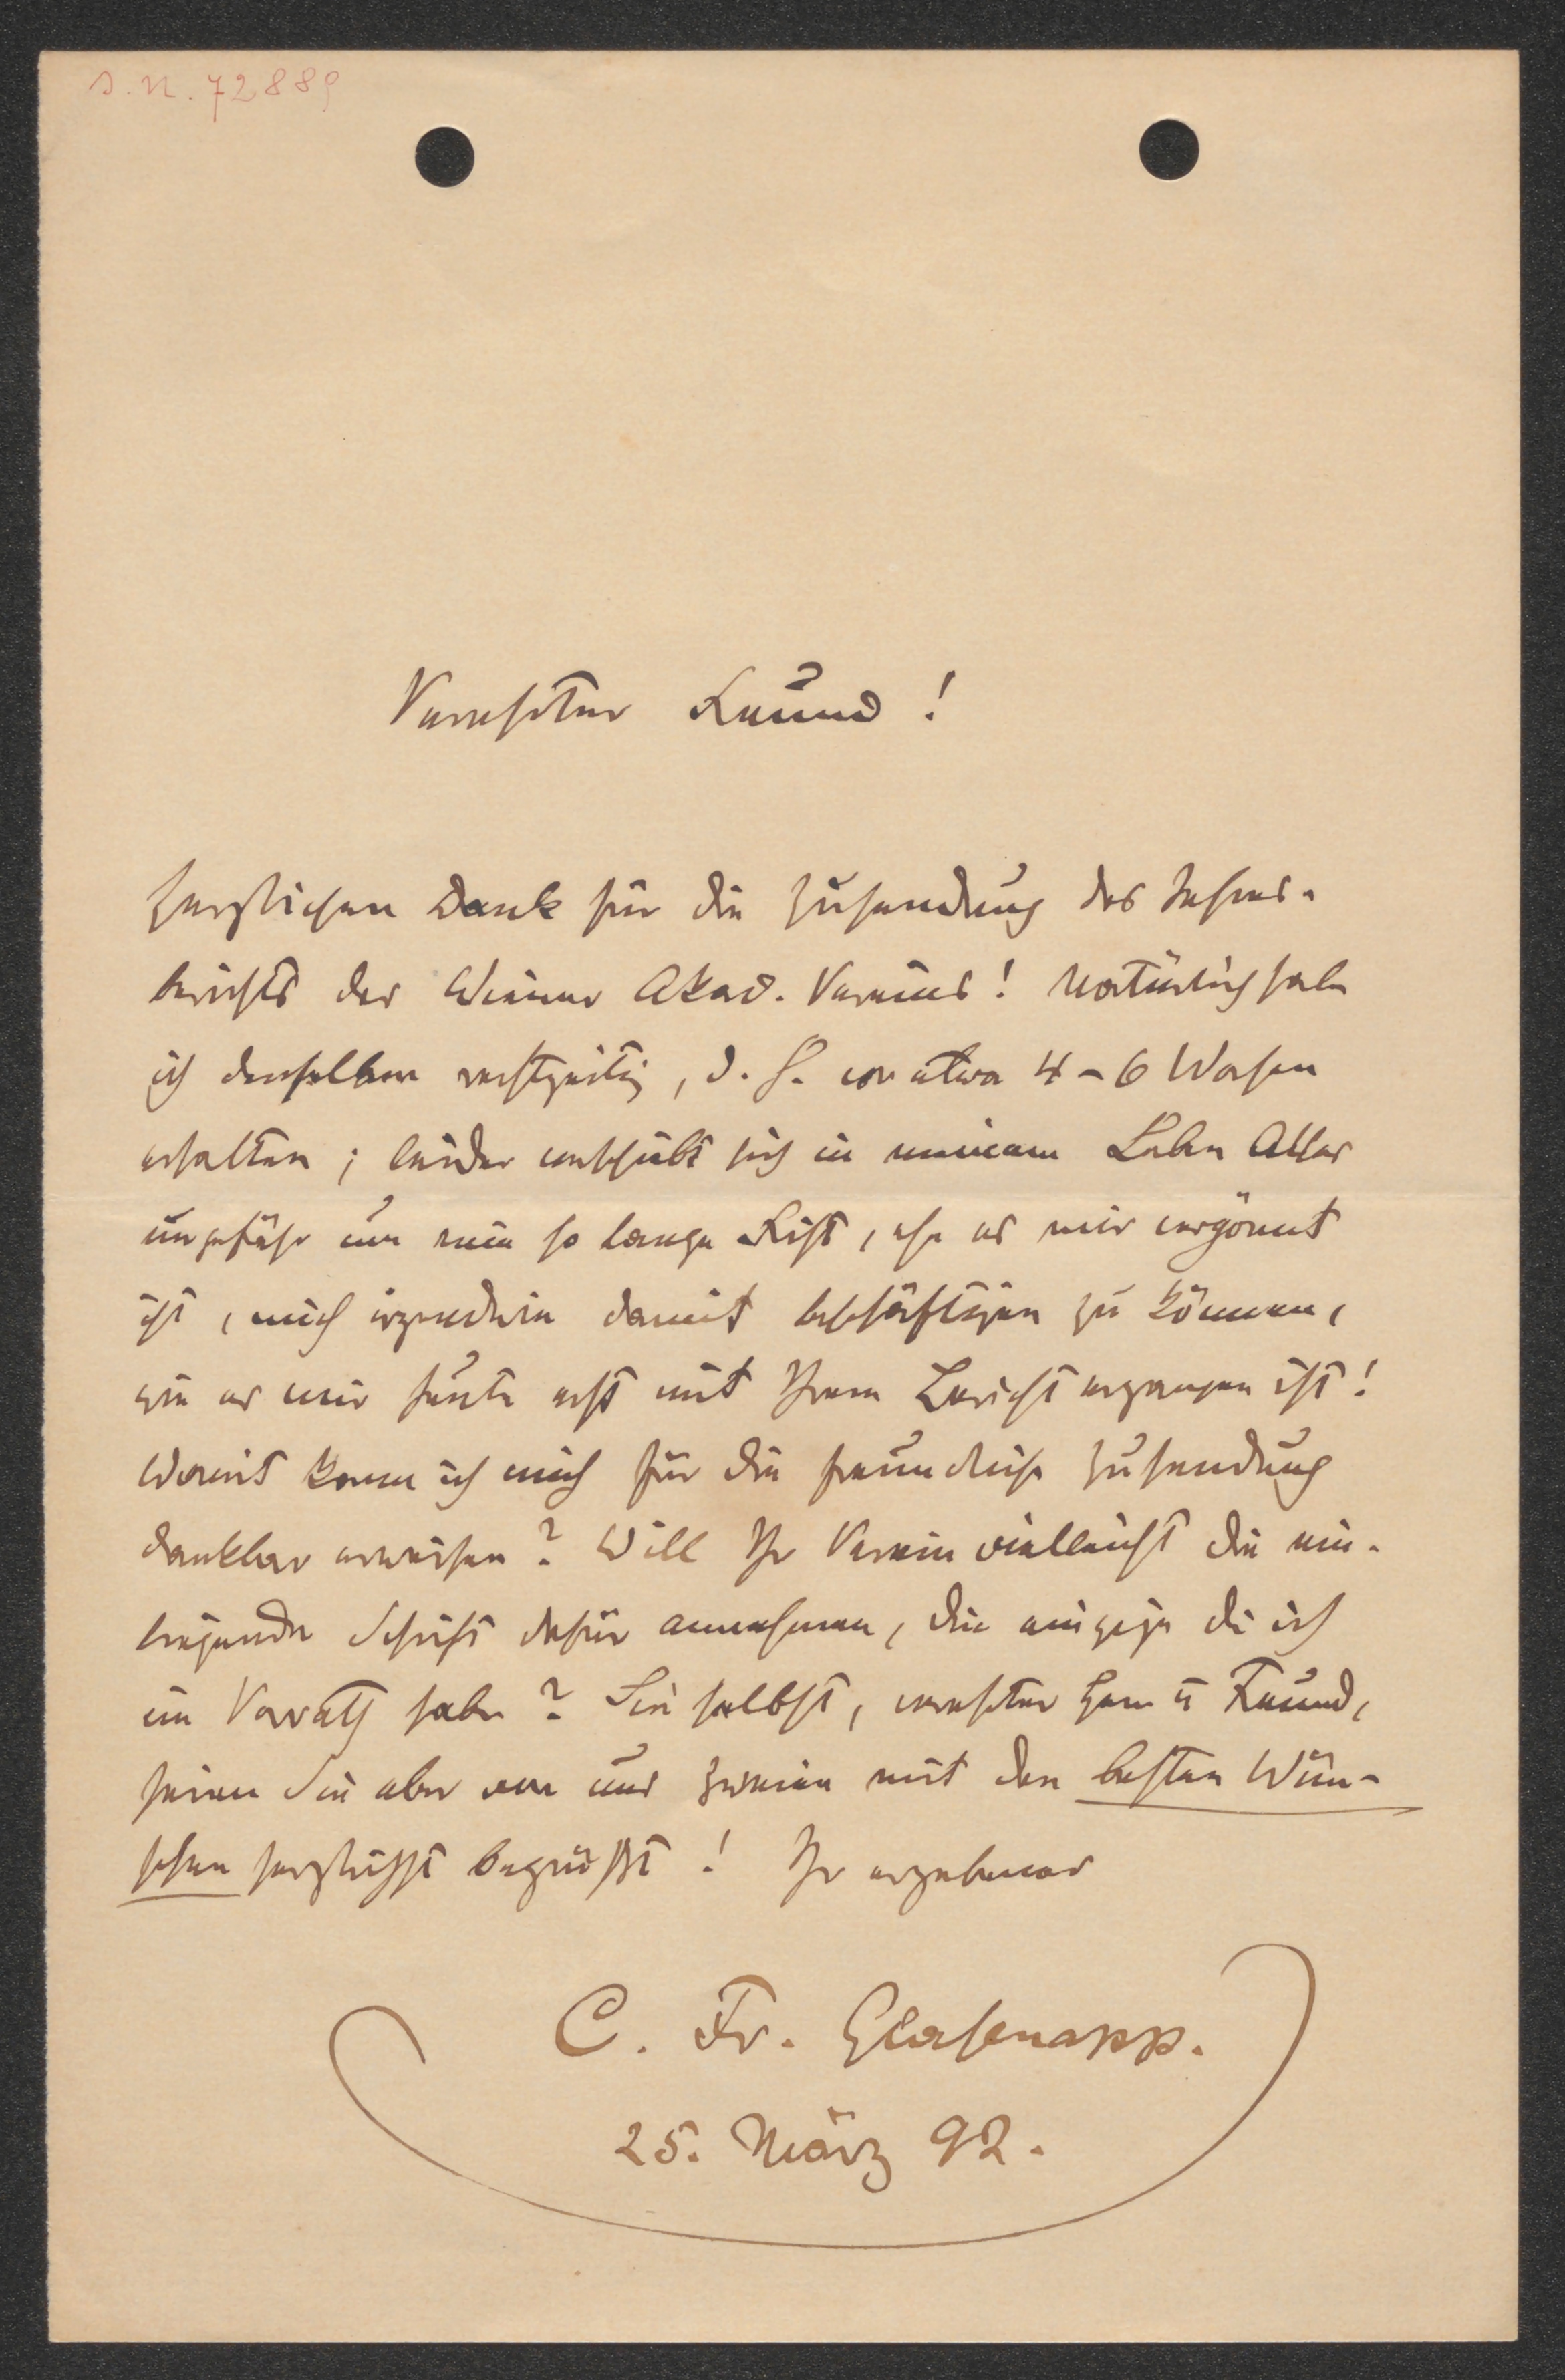 S. N. 72889
Verehrter Freund!
Herzlichen Dank für die Zusendung des Jahres-
berichts des Wiener Akad. Vereins! Natürlich habe
ich denselben rechtzeitig, d. h. vor etwa 4-6 Wochen
erhalten; leider verschiebt sich in meinem Leben Alles
ungefähr um eine so lange Frist, ehe es mir vergönnt
ist, mich irgendwie damit beschäftigen zu können,
wie es mir heute erst mit Ihrem Bericht ergangen ist!
Womit kann ich mich für die freundliche Zusendung
dankbar erweisen? Will Ihr Verein vielleicht die ein-
liegende Schrift dafür annehmen, die einzige die ich
im Vorrath habe? Sie selbst, verehrter Herr u Freund,
seien Sie aber von uns Zweien mit den besten Wün-
schen herzlichst begrüßt! Ihr ergebener
C. Fr. Glasenapp.
25. März 92.